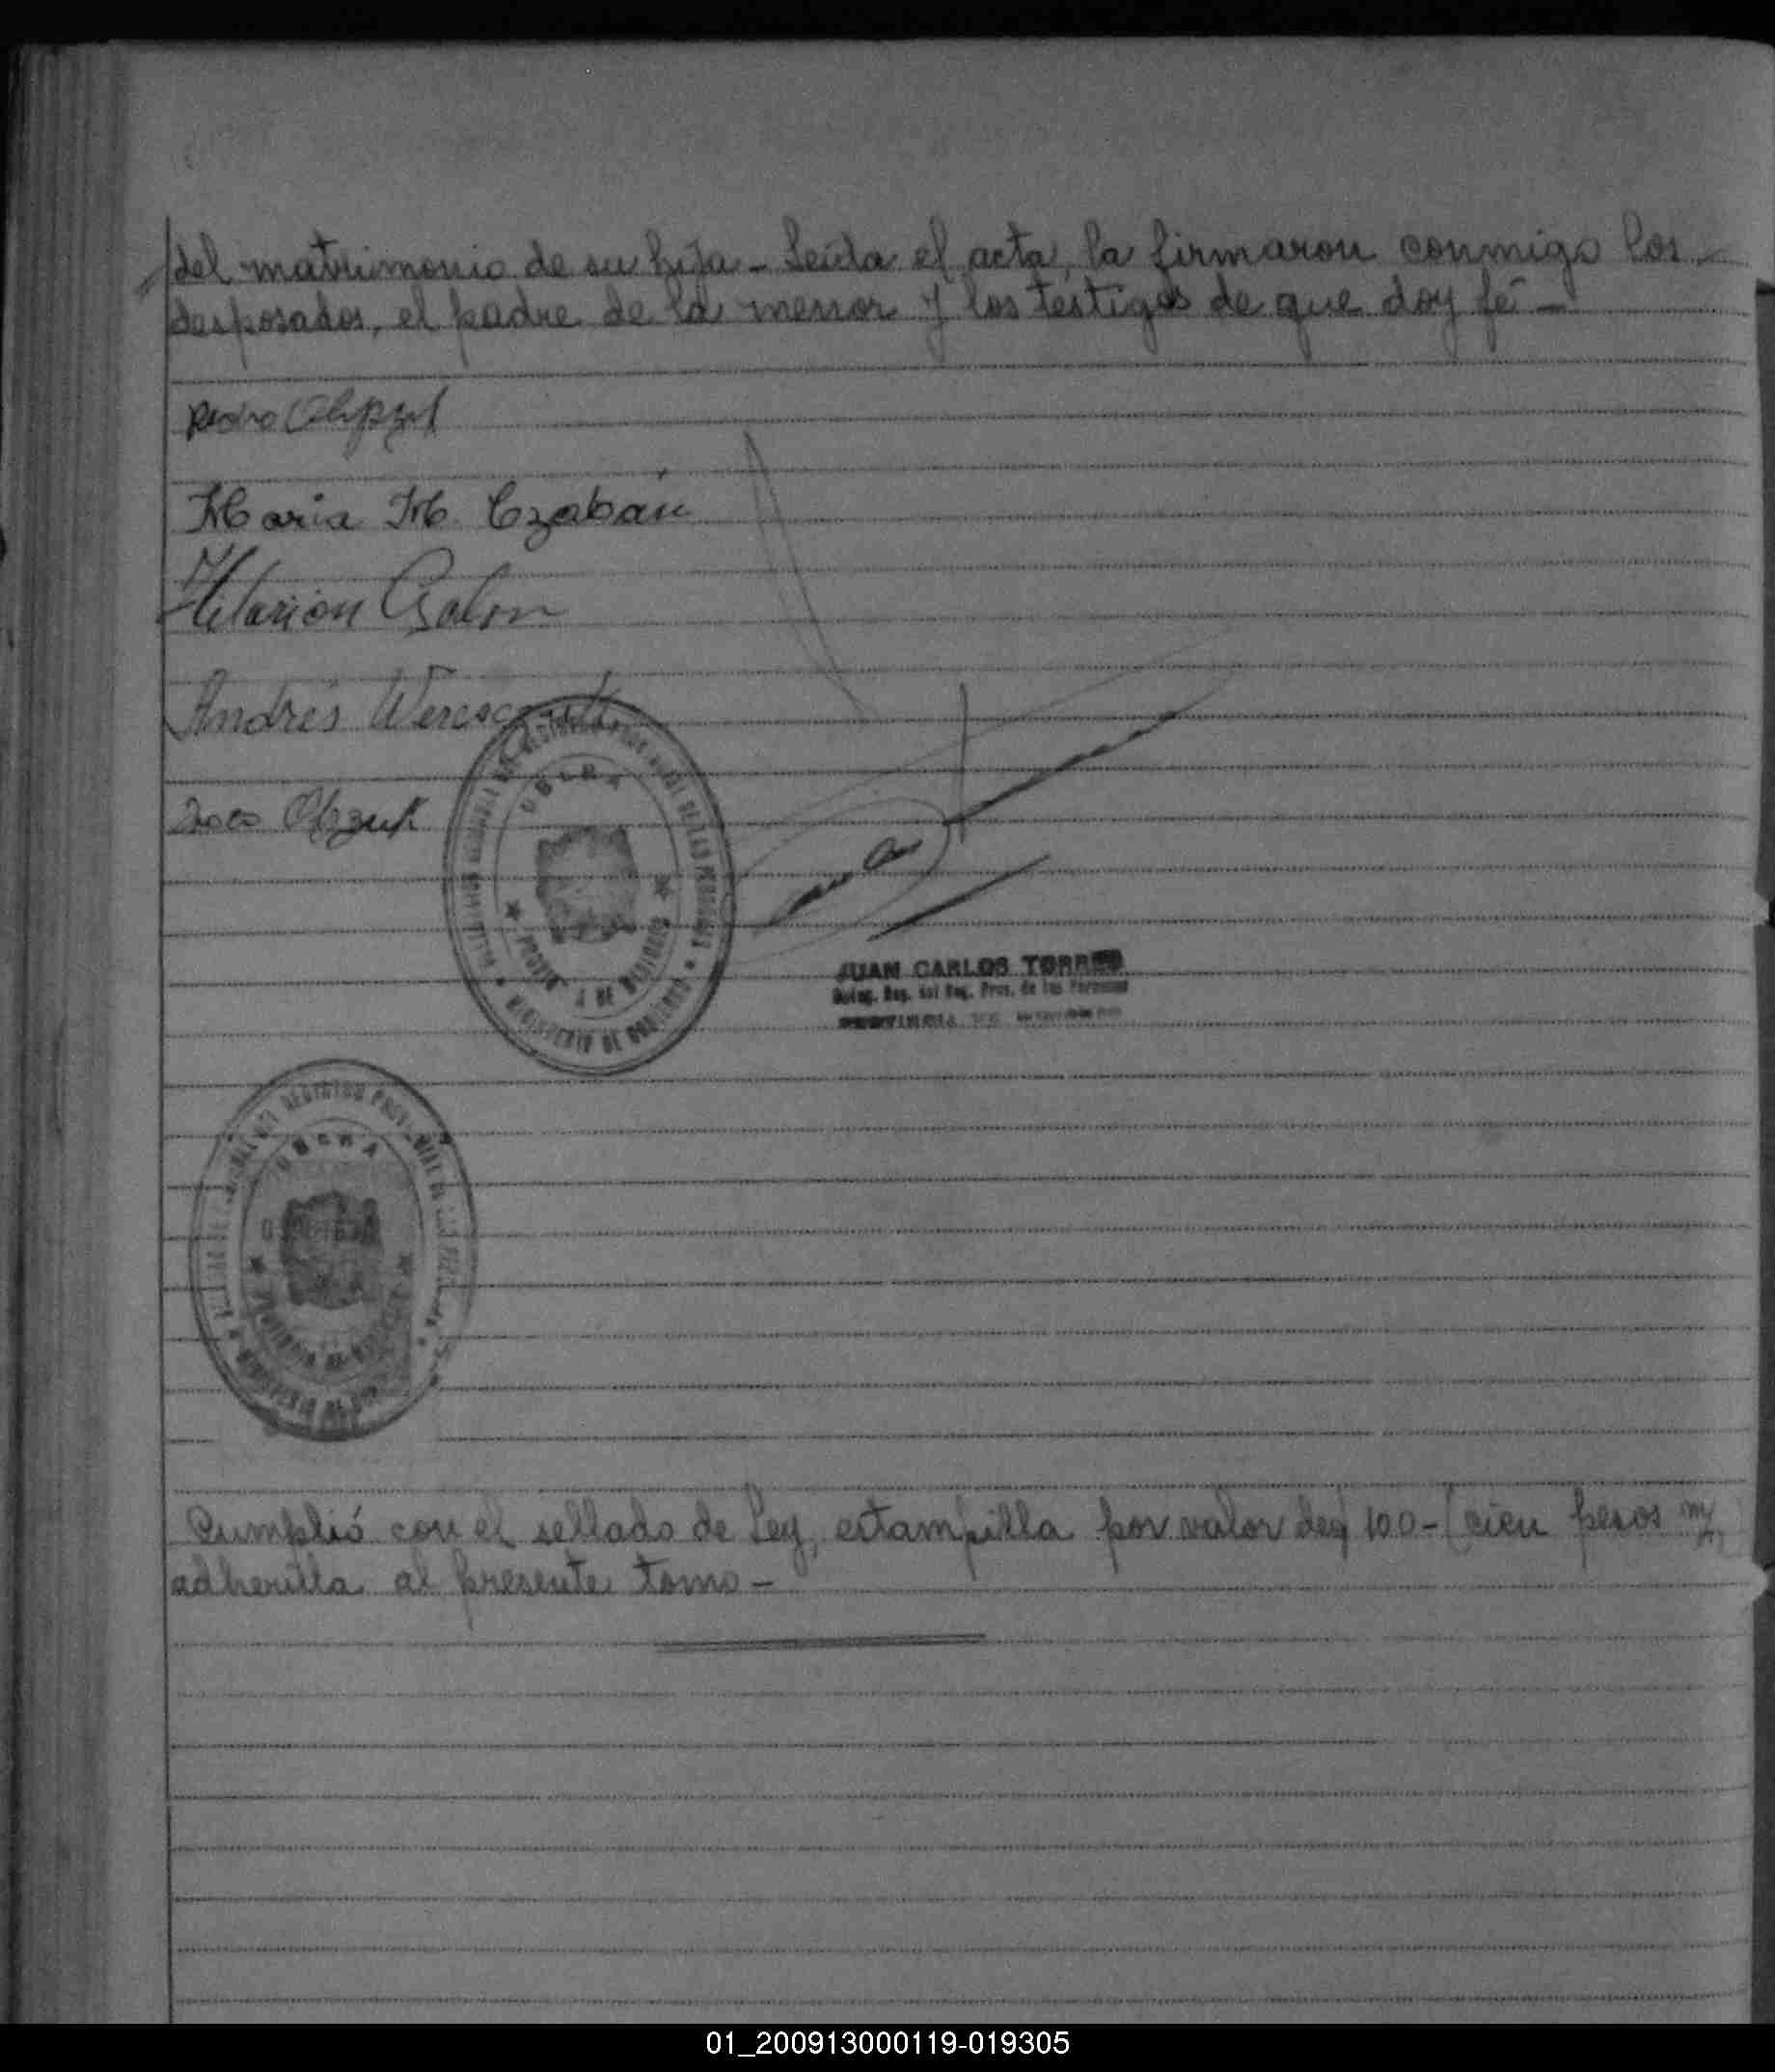 del matrimonio de su hija - Leída el acta, la firmaron conmigo los
desposados, el padre de la menor y los testigos de que doy fé -
Pedro
Maria M. Czabán
Hilarión
Andrés
OBERA
MINISTERIO DE GOBIERNO
JUAN CARLOS TORRES
Deleg. Reg. del Reg. Prov. de las Personas
OBERA
Cumplió con el sellado de Ley, estampilla por valor de $ 100 - (cien pesos m/n)
adherilla al presente tomo -
01_200913000119-019305